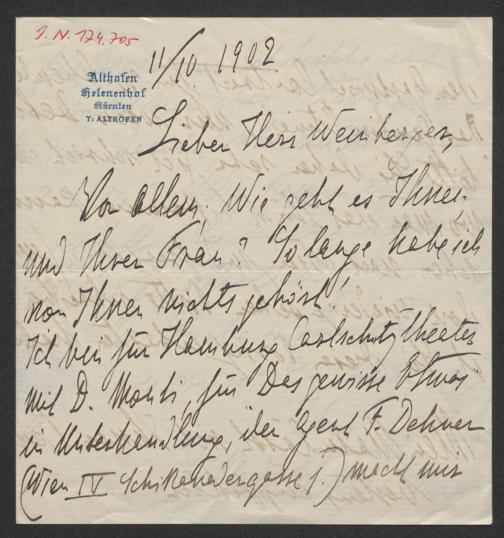 I. N. 174.705
11/10 1902
Althofen
Helenenhof
Kärnten
T: ALTHOFEN
Lieber Herr Weinberger,
Vor allem, Wie geht es Ihnen
und Ihrer Frau? So lange habe ich
von Ihnen nichts gehört!
Ich bin für Hamburg Carlschultztheater
mit D. Monti, für Das gewisse Etwas
in Unterhandlung, der Agent F. Dehner
(Wien IV Schikanedergasse 1.) macht mir